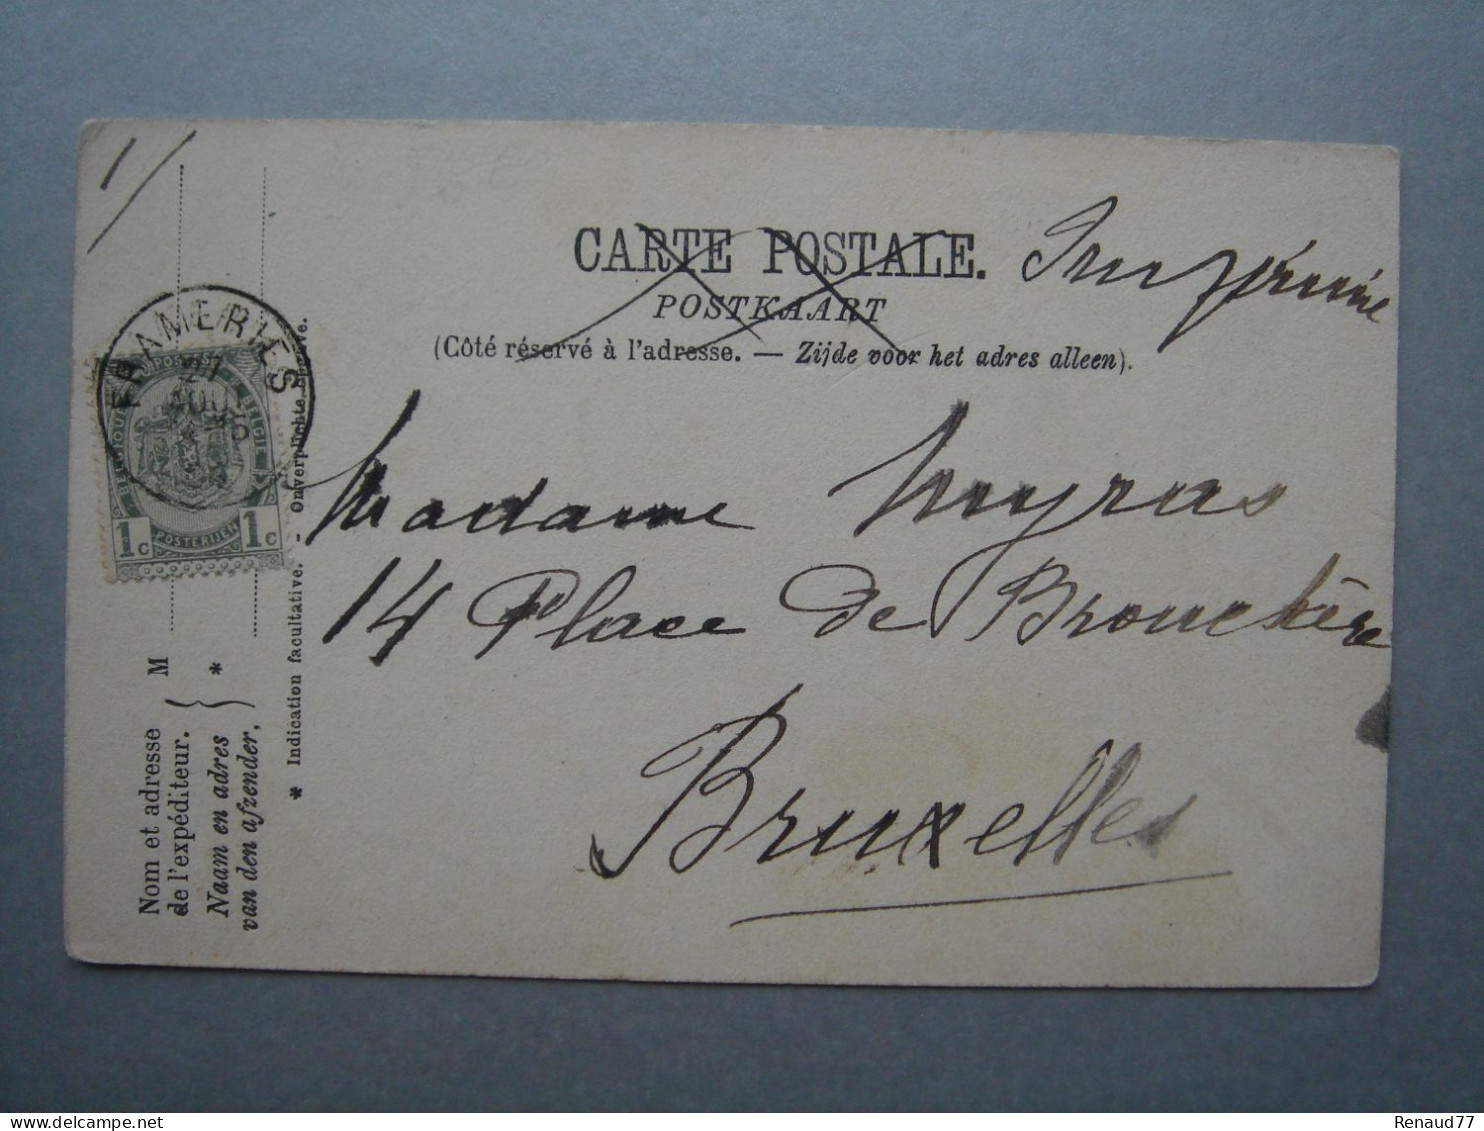 1/
CARTE POSTALE. Imprimé
POSTKAART
(Côté réservé à l'adresse. — Zijde voor het adres alleen).
FRAMERIES
27
AOUT
POSTES
BELGIQUE
BELGIË
1c POSTERIJEN 1c
Madame
14 Place de Brouckère
Bruxelles
M *
Nom et adresse
de l'expéditeur.
Naam en adres
van den afzender.
* Indication facultative. - Onverplichte
delcampe.net
Renaud77